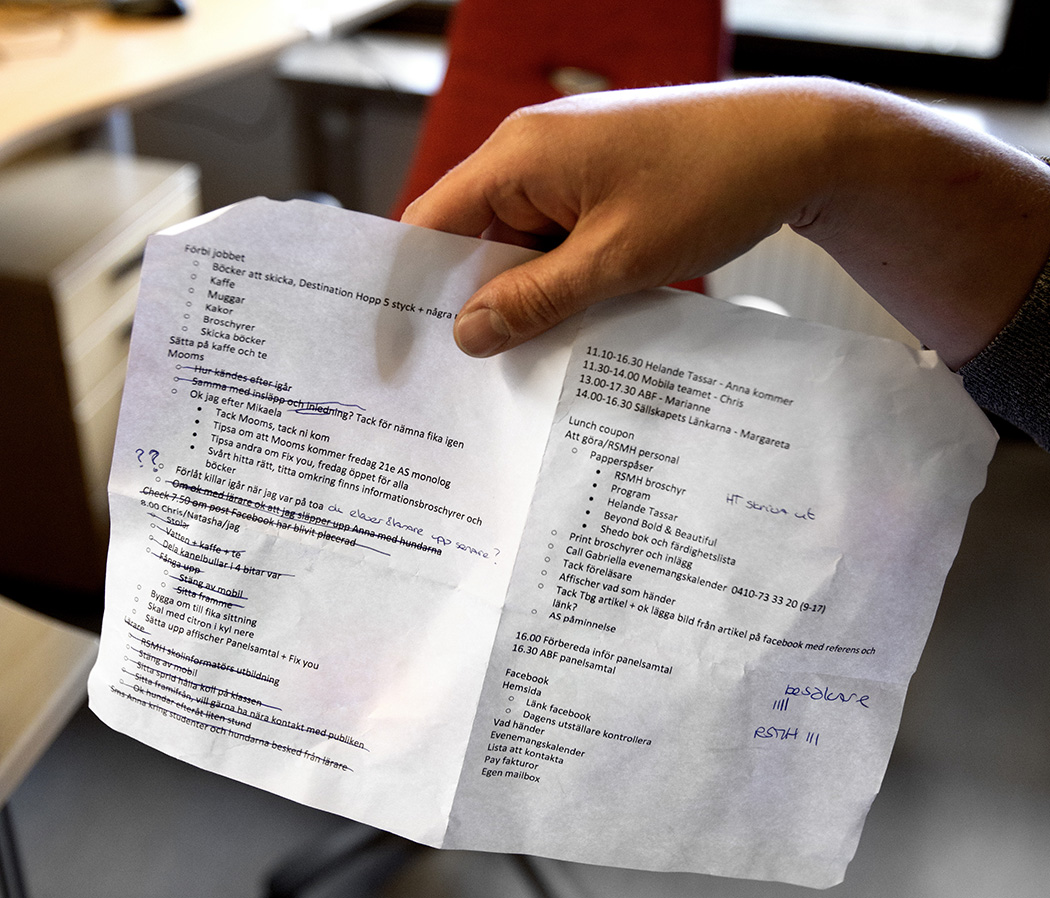 Förbi jobbet
Böcker att skicka, Destination Hopp 5 styck + några
Kaffe
Muggar
Kakor
Broschyrer
Skicka böcker
Sätta på kaffe och te
Mooms
Hur kändes efter igår
Samma med insläpp och inledning? Tack för nämna fika igen
Ok jag efter Mikaela
Tack Mooms, tack ni kom
Tipsa om att Mooms kommer fredag 21e AS monolog
Tipsa andra om Fix you, fredag öppet för alla
Svårt hitta rätt, titta omkring finns informationsbroschyrer och
böcker
??
Förlåt killar igår när jag var på toa du elever lärare upp senare?
Om ok med lärare ok att jag släpper upp Anna med hundarna
Check 7.50 om post Facebook har blivit placerad
8.00 Chris/Natasha/jag
Stolar
Vatten + kaffe + te
Dela kanelbullar i 4 bitar var
Fånga upp
Stäng av mobil
Sitta framme
Bygga om till fika sittning
Skal med citron i kyl nere
Sätta upp affischer Panelsamtal + Fix you
RSMH skolinformatörs utbildning
Stäng av mobil
Sitta sprid hålla koll på klassen
Sitta framifrån, vill gärna ha nära kontakt med publiken
Ok hundar efteråt liten stund
Sms Anna kring studenter och hundarna besked från lärare
11.10-16.30 Helande Tassar - Anna kommer
11.30-14.00 Mobila teamet - Chris
13.00-17.30 ABF - Marianne
14.00-16.30 Sällskapets Länkarna - Margareta
Lunch coupon
Att göra/RSMH personal
Papperspåser
RSMH broschyr
Program
Helande Tassar
Beyond Bold & Beautiful
Shedo bok och färdighetslista
HT skriva ut
Print broschyrer och inlägg
Call Gabriella evenemangskalender 0410-73 33 20 (9-17)
Tack föreläsare
Affischer vad som händer
Tack Tbg artikel + ok lägga bild från artikel på facebook med referens och
länk?
AS påminnelse
16.00 Förbereda inför panelsamtal
16.30 ABF panelsamtal
Facebook
Hemsida
Länk facebook
Dagens utställare kontrollera
Vad händer
Evenemangskalender
Lista att kontakta
Pay fakturor
Egen mailbox
besökare
IIII
RSMH III